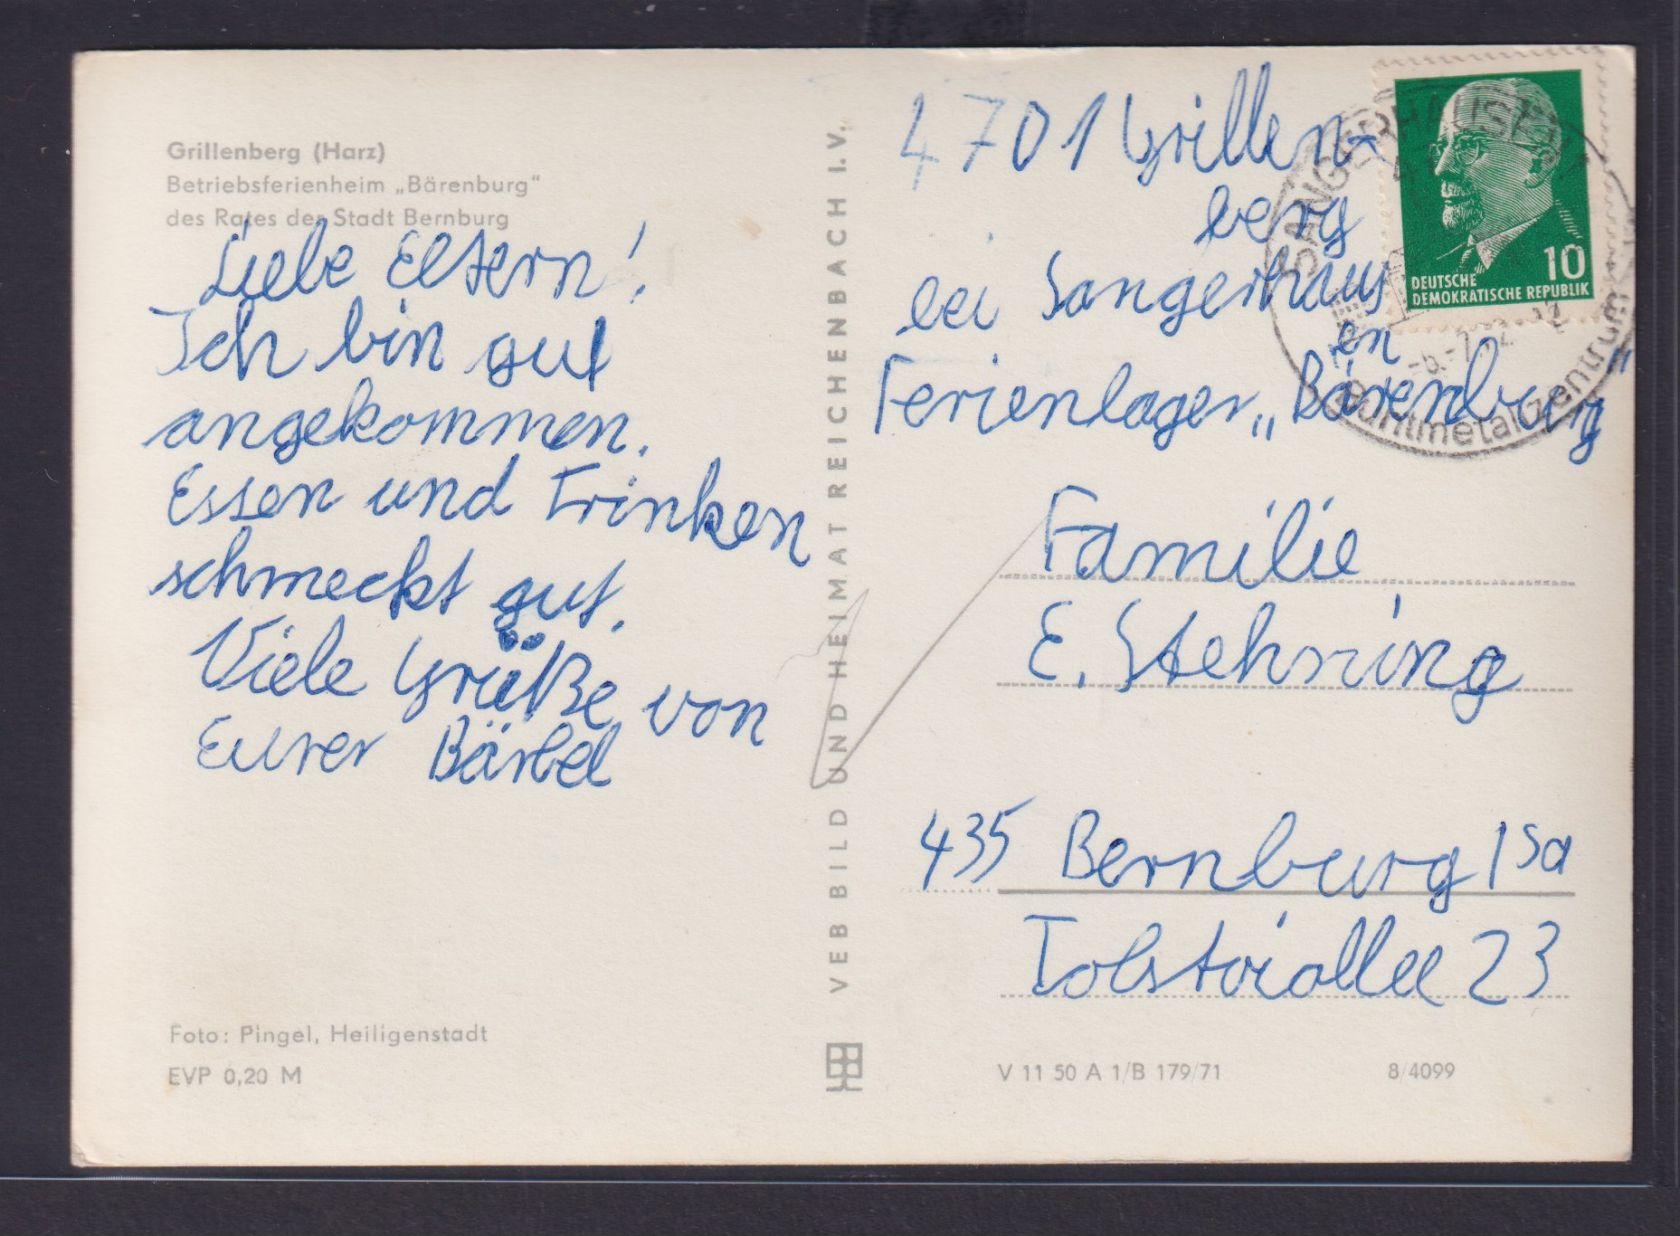 Grillenberg (Harz)
Betriebsferienheim „Bärenburg“
des Rates der Stadt Bernburg
Liebe Eltern!
Ich bin gut
angekommen.
Essen und Trinken
schmeckt gut.
Viele Grüße von
Eurer Bärbel
Foto: Pingel, Heiligenstadt
EVP 0,20 M
VEB BILD UND HEIMAT REICHENBACH I.V.
4701 Grillen-
berg
bei Sangerhaus
en
Ferienlager „Bärenburg“
SANGERHAUSEN
Buntmetallzentrum
10
DEUTSCHE
DEMOKRATISCHE REPUBLIK
Familie
E. Stehning
435 Bernburg 1 Sa
Tolstoiallee 23
V 11 50 A 1/B 179/71
8/4099